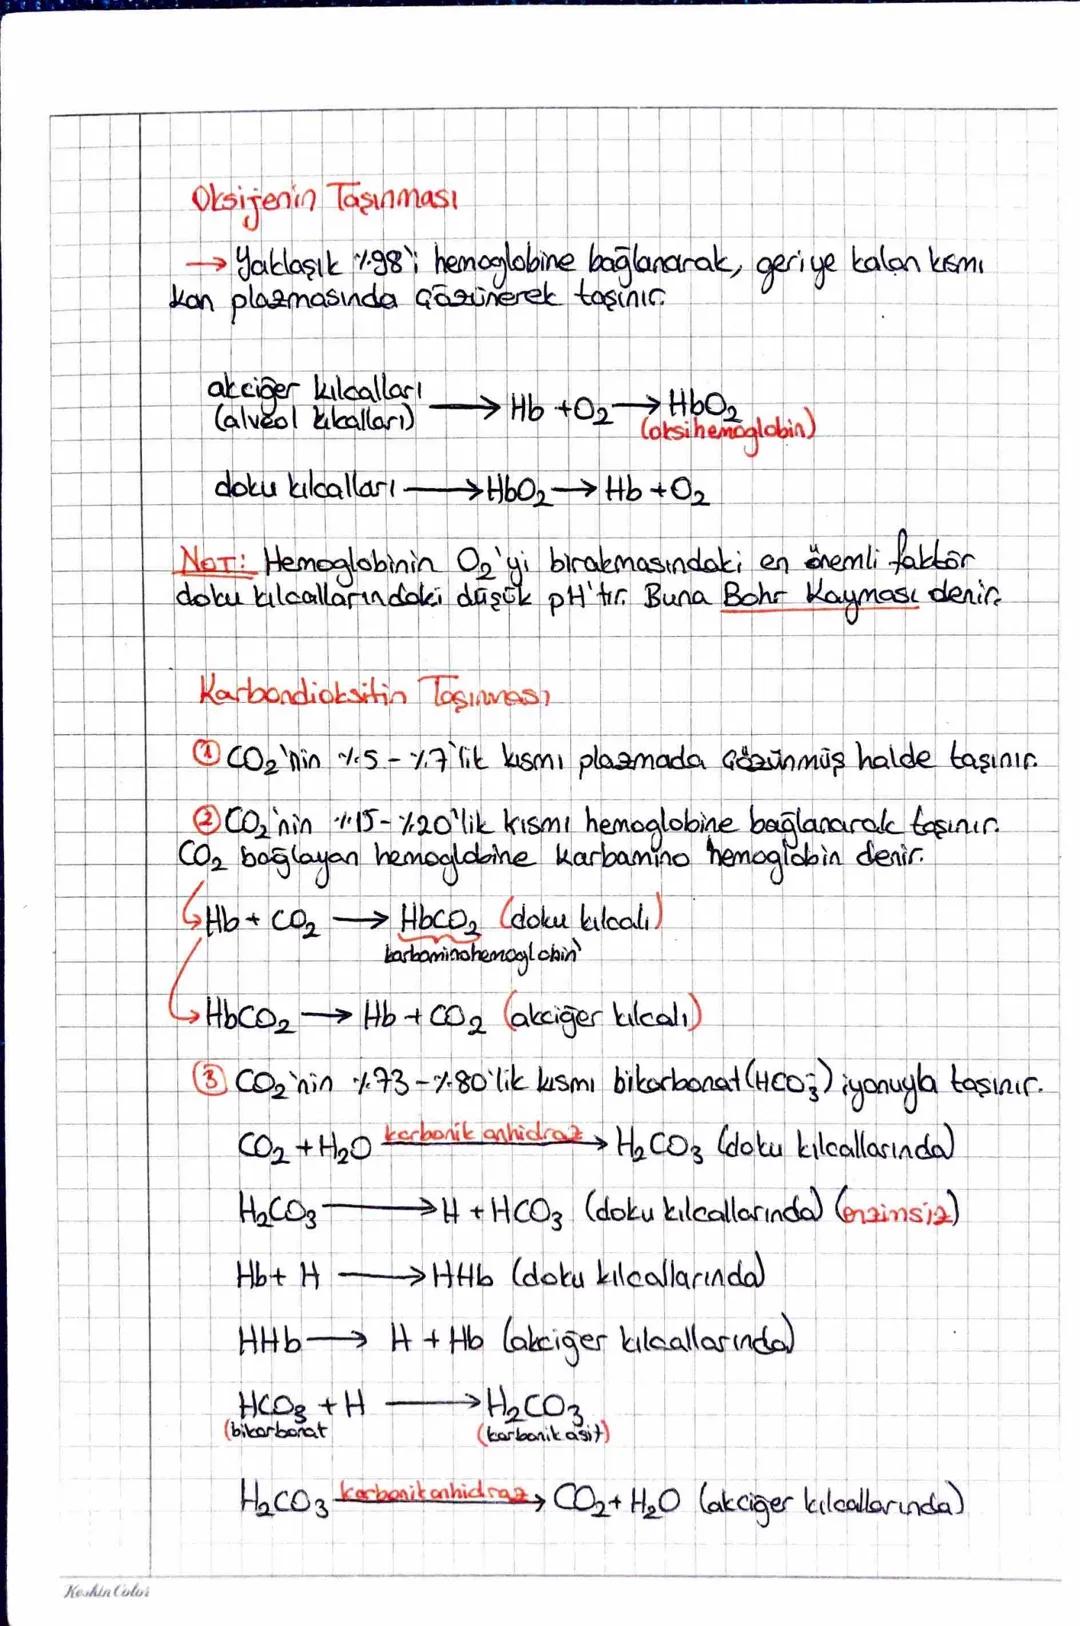 Oksijenin Taşınması
→ Yaklaşık %98'i hemoglobine bağlanarak, geriye kalan kısmı
kan plazmasında çözünerek taşınır.
akciğer kılcalları
(alveol kılcalları) → Hb + O₂ → HbO₂
(oksihemoglobin)
doku kılcalları → HbO₂ → Hb + O₂
NOT: Hemoglobinin O₂'yi bırakmasındaki en önemli faktör
doku kılcallarındaki düşük pH'tır. Buna Bohr Kayması denir.
Karbondioksitin Taşınması
① CO₂'nin %5 - %7'lik kısmı plazmada çözünmüş halde taşınır.
② CO₂'nin %15 - %20'lik kısmı hemoglobine bağlanarak taşınır.
CO₂ bağlayan hemoglobine karbamino hemoglobin denir.
Hb + CO₂ → HbCO₂ (doku kılcalı)
karbominohemoglobin
HbCO₂ → Hb + CO₂ (akciğer kılcalı)
③ CO₂'nin %73 - %80'lik kısmı bikarbonat (HCO₃⁻) iyonuyla taşınır.
CO₂ + H₂O karbonik anhidraz → H₂CO₃ (doku kılcallarında)
H₂CO₃ → H + HCO₃ (doku kılcallarında) (enzimsiz)
Hb + H → HHb (doku kılcallarında)
HHb → H + Hb (akciğer kılcallarında)
HCO₃ + H → H₂CO₃
(bikarbonat (karbonik asit)
H₂CO₃ karbonik anhidraz → CO₂ + H₂O (akciğer kılcallarında)
Keskin Color